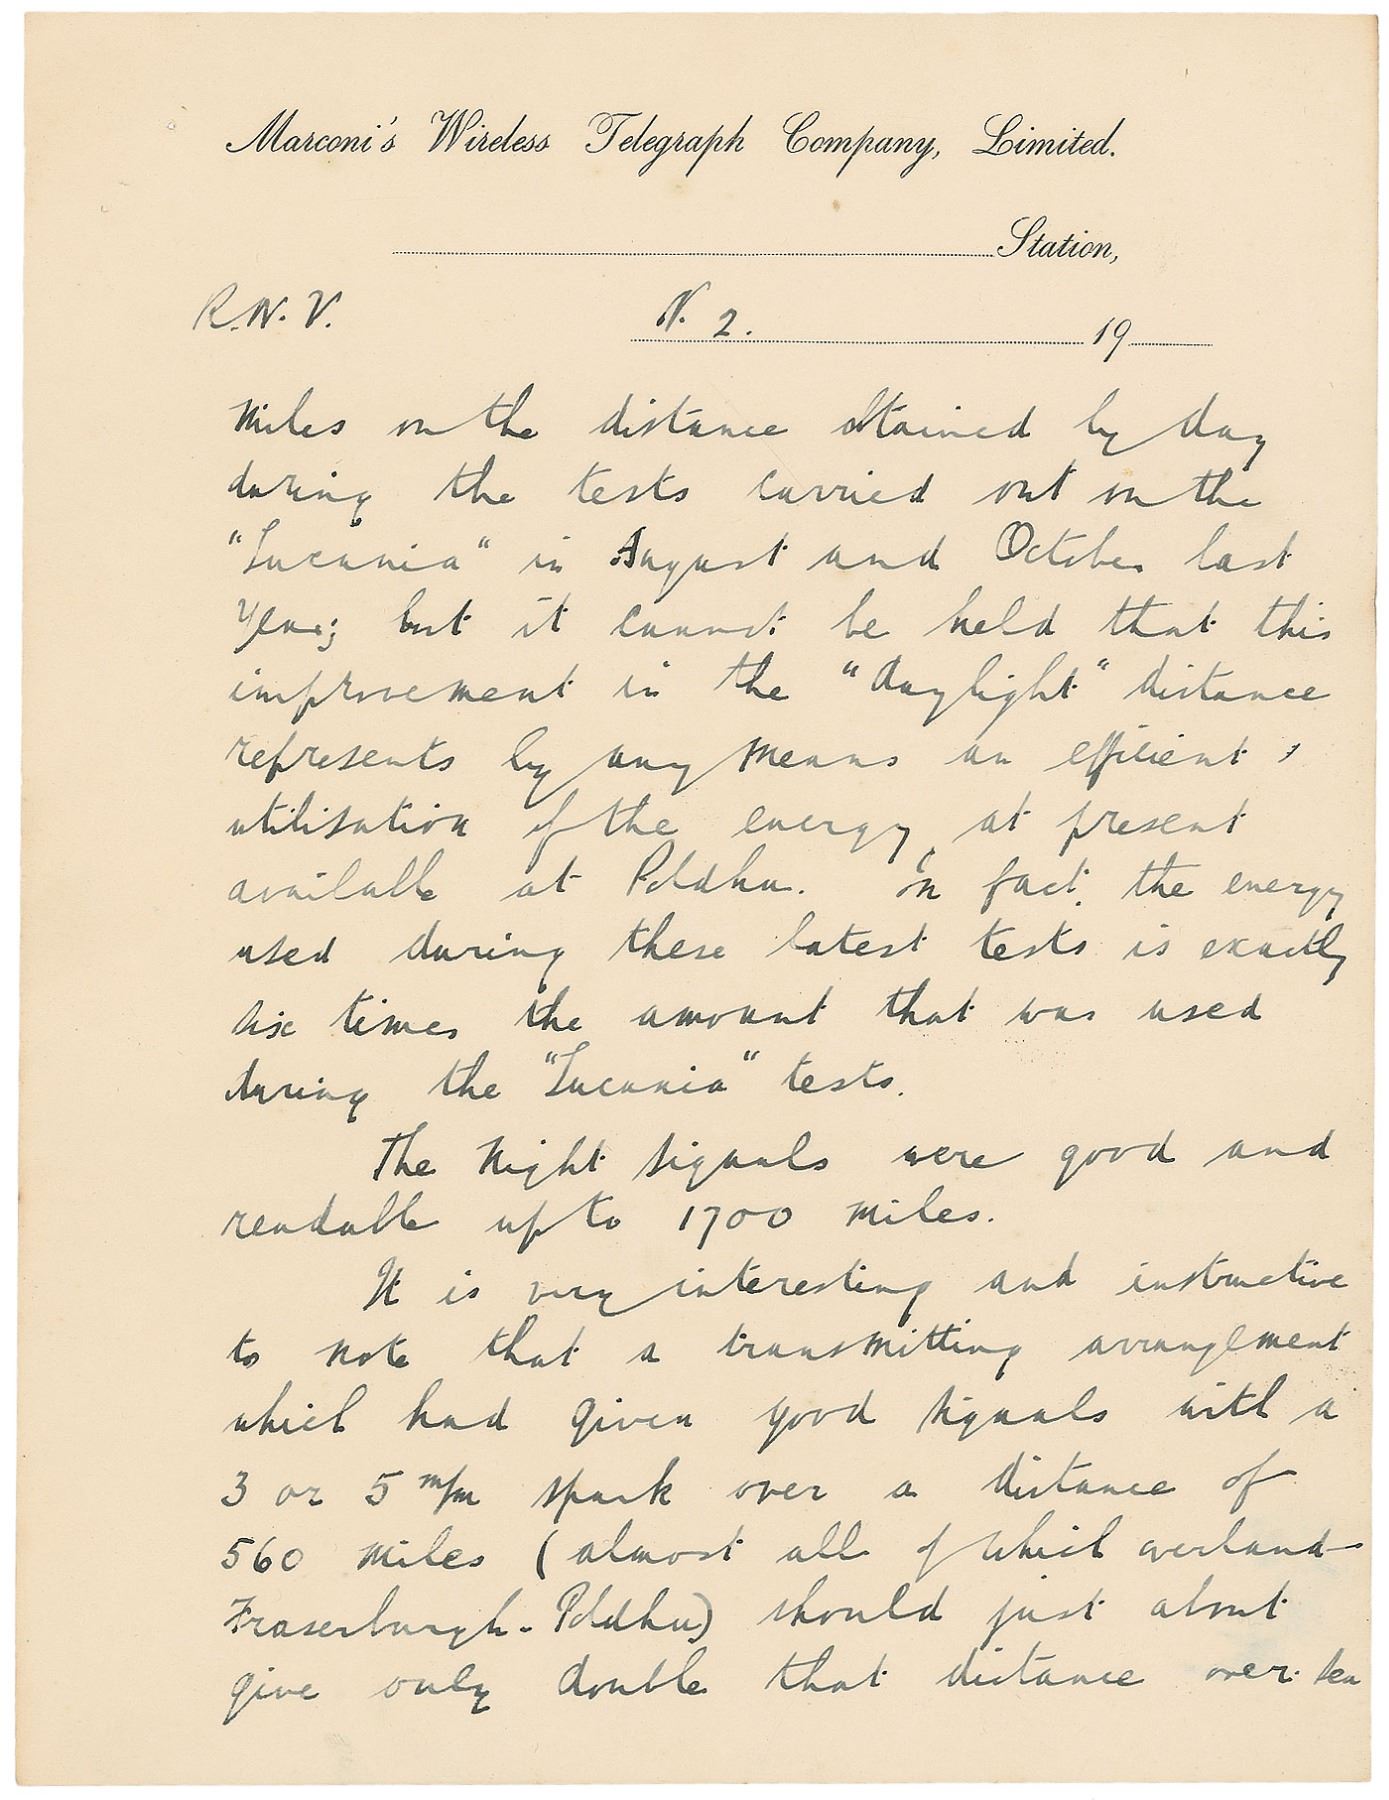 Marconi's Wireless Telegraph Company, Limited.
Station,
R.N.V.
N. 2. 19
miles on the distance obtained by day
during the tests carried out on the
"Lucania" in August and October last
year; but it cannot be held that this
improvement in the "daylight" distance
represents by any means an efficient
utilisation of the energy at present
available at Poldhu. In fact, the energy
used during these latest tests is exactly
six times the amount that was used
during the "Lucania" tests.
The night signals were good and
readable up to 1700 miles.
It is very interesting and instructive
to note that a transmitting arrangement
which had given good signals with a
3 or 5 m/m spark over a distance of
560 miles (almost all of which overland-
Fraserburgh - Poldhu) should just about
give only double that distance over sea